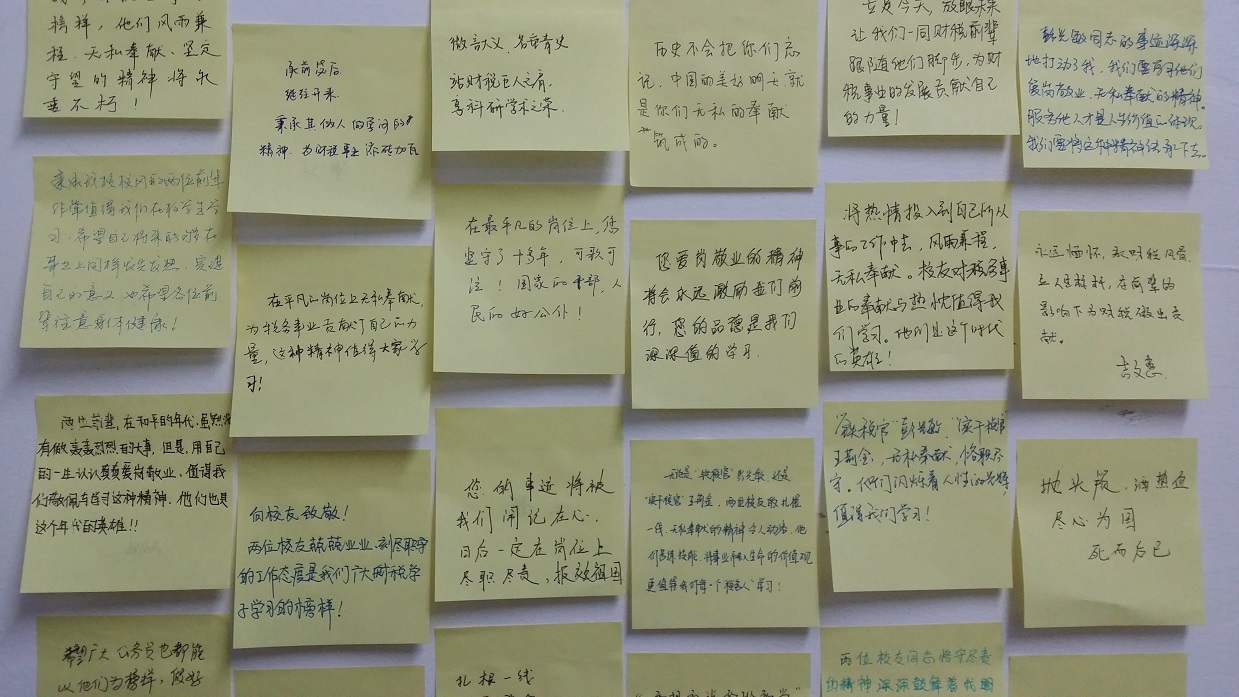 榜样，他们风雨兼
程、无私奉献、坚定
守望的精神将永
垂不朽！
秉承我校校训的两位前辈
非常值得我们在校学生学
习，希望自己将来的能在
事业上同样发光发热，实现
自己的意义，也希望各位前
辈注意身体健康！
两位前辈，在和平的年代，虽然没
有做轰轰烈烈的大事，但是，用自己
的一生认认真真爱岗敬业，值得我
们敬佩与学习这种精神。他们也是
这个年代的英雄！！
希望广大公务员也都能
以他们为榜样，做好
承前启后
继往开来
秉承其
精神，为财税事业添砖加瓦
在平凡的岗位上无私奉献，
为税务事业贡献了自己的力
量，这种精神值得大家学
习！
向校友致敬！
两位校友兢兢业业、刻尽职守
的工作态度是我们广大财税学
子学习的榜样！
微言大义，名垂青史
站财税巨人之肩，
享科研学术之荣。
在最平凡的岗位上，您
坚守了十多年，可歌可
泣！国家的干部，人
民的好公仆！
您的事迹将被
我们用记在心，
日后一定在岗位上
尽职尽责，报效祖国
扎根一线
历史不会把你们忘
记，中国的美好明天就
是你们无私的奉献
筑成的。
您爱岗敬业的精神
将会永远激励我们前
行，您的品德是我们
深深值的学习.
无论是“铁税官”彭光敏，还是
“实干税官”王莉金，两位校友都扎根
一线，无私奉献的精神令人动容，他
们苦练技能，将事业融入生命的价值观
更值得我们每一个税务人学习！
立足今天，放眼未来
让我们一同财税前辈
跟随他们脚步，为财
税事业的发展贡献自己
的力量！
将热情投入到自己所从
事的工作中去，风雨兼程，
无私奉献。校友对税务事
业的奉献与热忱值得我
们学习。他们是这个时代
的英雄！
“铁税官”彭光敏，“实干税官”
王莉金，无私奉献，恪职尽
守。他们闪烁着人性的光辉，
值得我们学习！
两位校友同志恪守尽责
的精神深深鼓舞着我国
彭光敏同志的事迹深深
地打动了我，我们要学习他们
爱岗敬业、无私奉献的精神。
服务他人才是人生价值的体现。
我们要将这种精神传承下去。
永远缅怀，
在前辈的
影响下为财税做出贡
献。
抛头颅，洒热血
尽心为国
死而后已